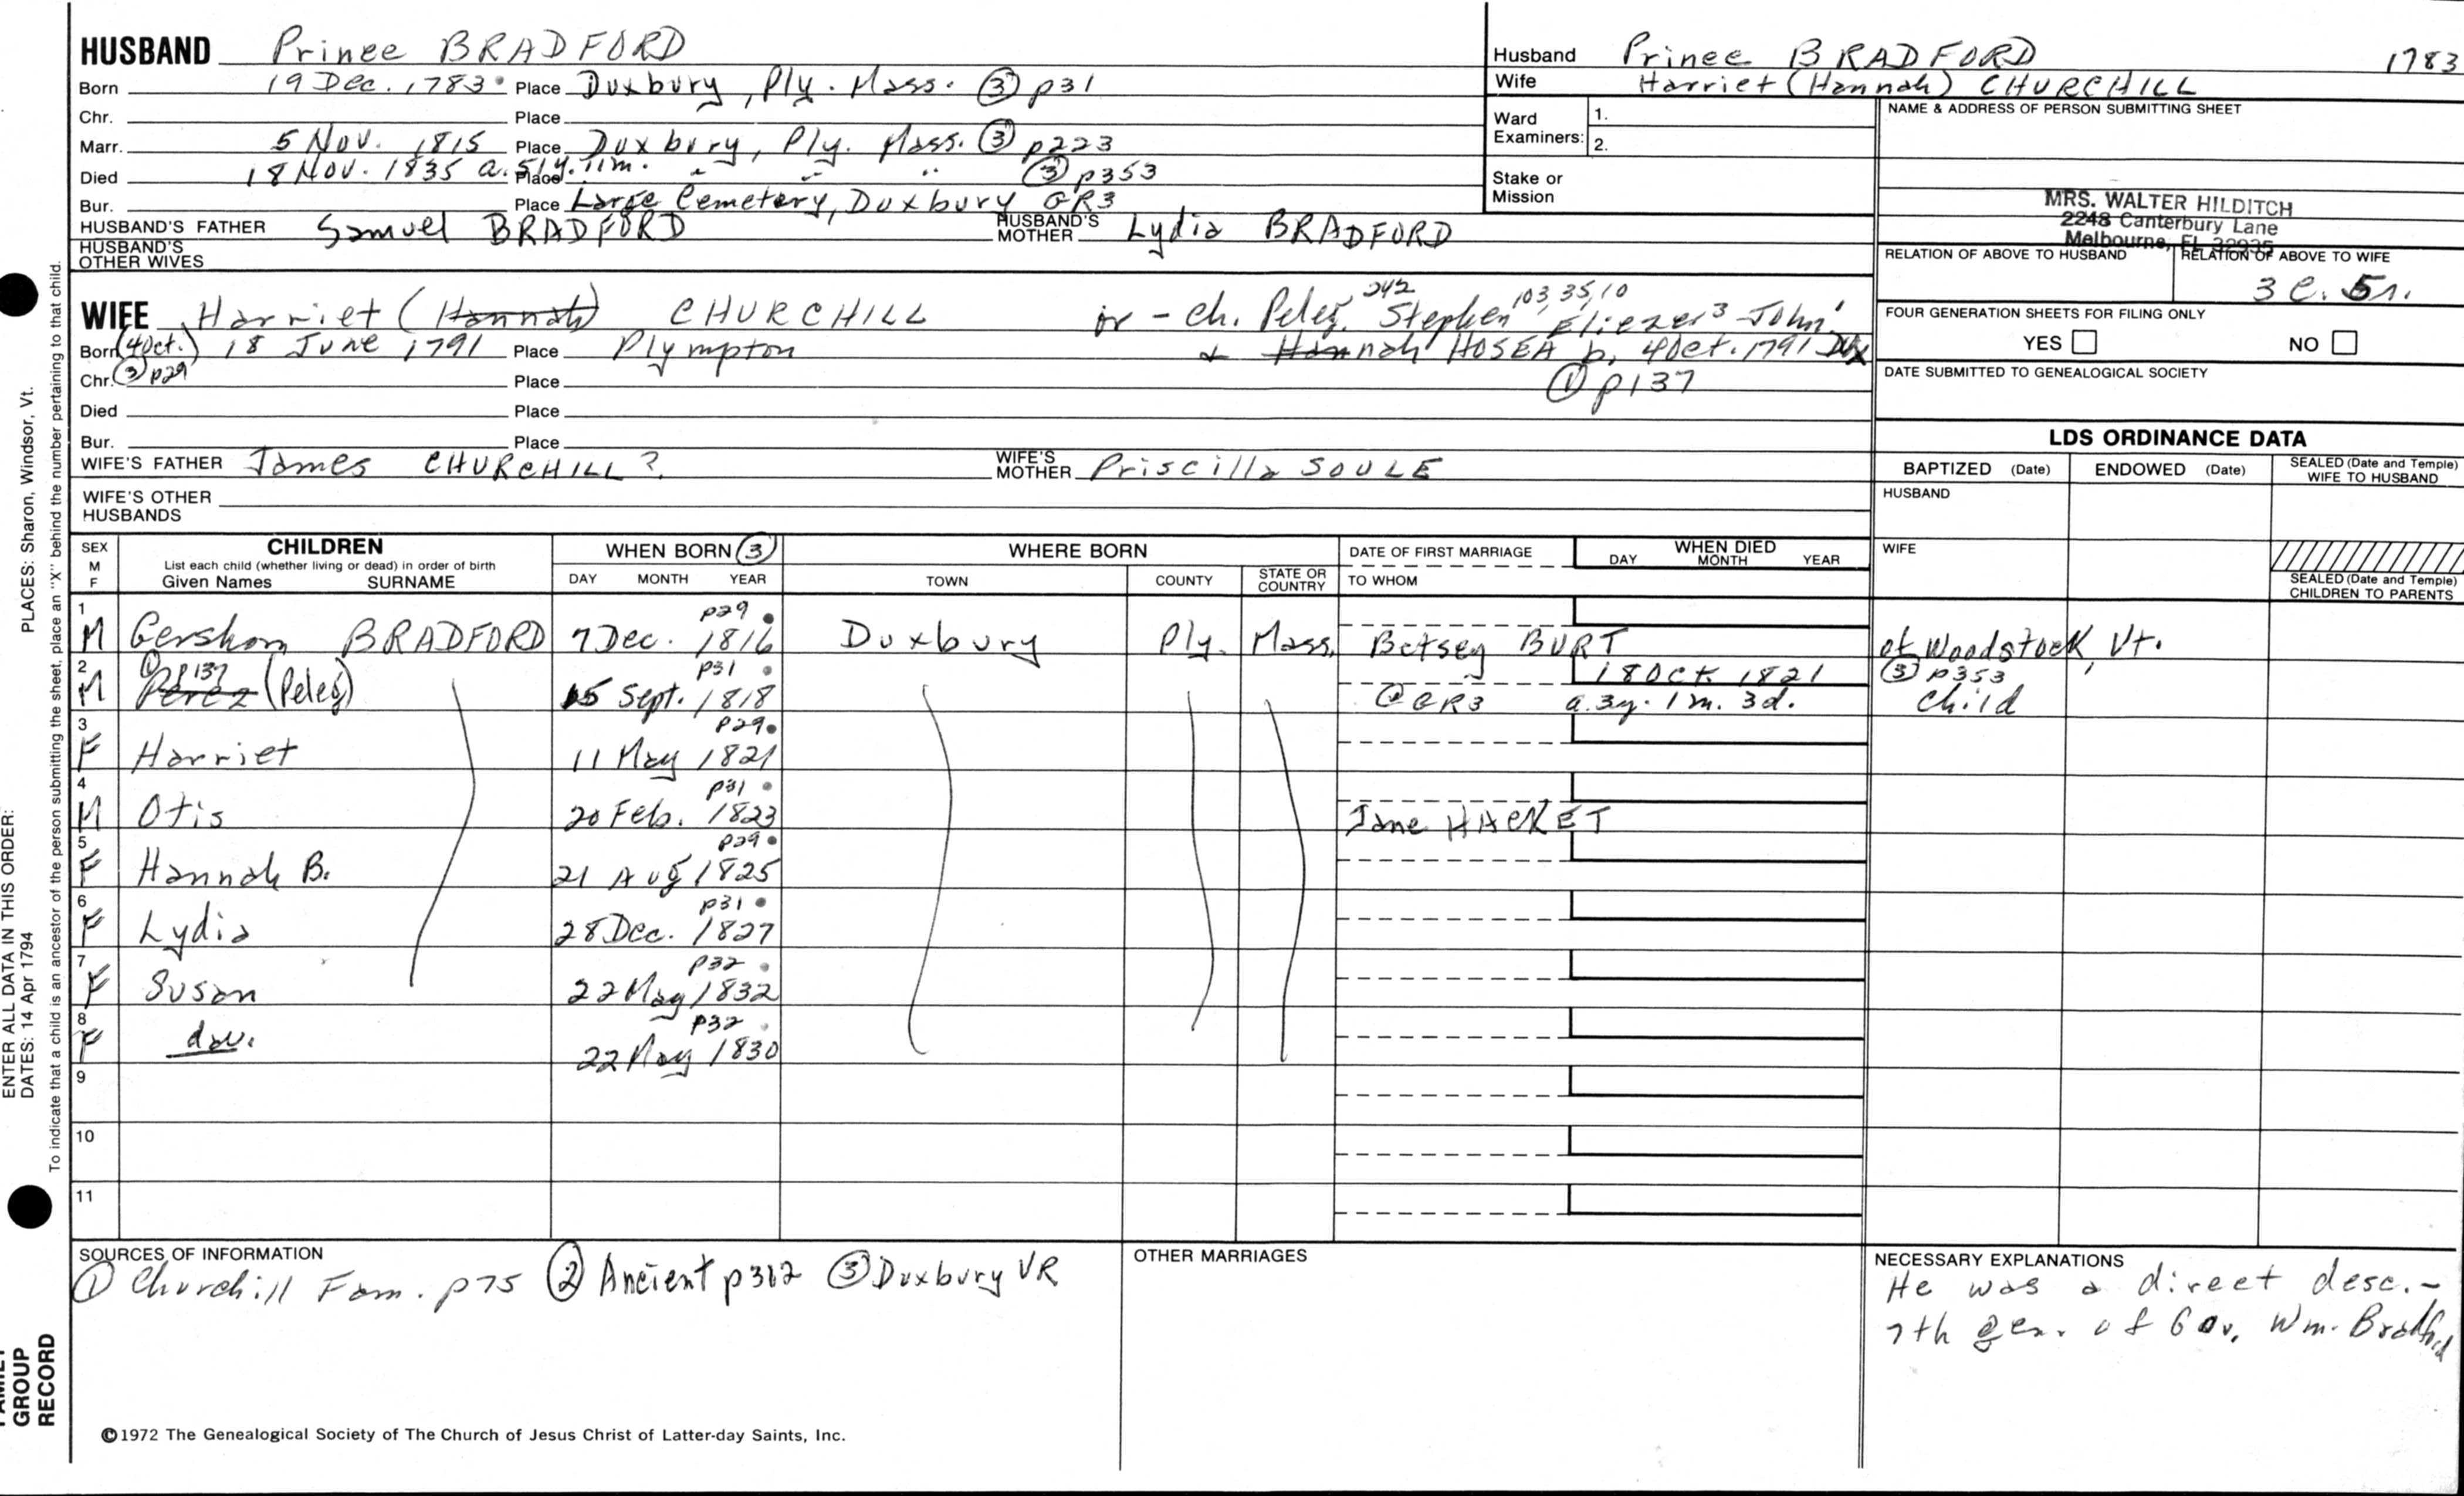 HUSBAND Prince BRADFORD
Born 19 Dec. 1783 Place Duxbury, Ply. Mass. ③ p31
Chr. Place
Marr. 5 Nov. 1815 Place Duxbury, Ply. Mass. ③ p223
Died 18 Nov. 1835 a. 51y. 11m. Place " " " ③ p353
Bur. Place Large Cemetery, Duxbury GR3
HUSBAND'S FATHER Samuel BRADFORD HUSBAND'S MOTHER Lydia BRADFORD
HUSBAND'S OTHER WIVES
Husband Prince BRADFORD 1783
Wife Harriet (Hannah) CHURCHILL
Ward Examiners: 1.
2.
Stake or Mission
NAME & ADDRESS OF PERSON SUBMITTING SHEET
MRS. WALTER HILDITCH
2248 Canterbury Lane
Melbourne, FL 32935
RELATION OF ABOVE TO HUSBAND RELATION OF ABOVE TO WIFE
3c. 5r.
FOUR GENERATION SHEETS FOR FILING ONLY
YES NO
DATE SUBMITTED TO GENEALOGICAL SOCIETY
WIFE Harriet (Hannah) CHURCHILL or - ch. Peleg 242 Stephen 103,35,10 Eliezer 3 John 1
Born (4 Oct.) 18 June 1791 Place Plympton & Hannah HOSEA b. 4 Oct. 1791 Dux
Chr. ③ p29 Place ① p137
Died Place
Bur. Place
WIFE'S FATHER James CHURCHILL? WIFE'S MOTHER Priscilla SOULE
WIFE'S OTHER HUSBANDS
LDS ORDINANCE DATA
BAPTIZED (Date) ENDOWED (Date) SEALED (Date and Temple) WIFE TO HUSBAND
HUSBAND
WIFE
SEALED (Date and Temple) CHILDREN TO PARENTS
SEX M F CHILDREN WHEN BORN ③ WHERE BORN DATE OF FIRST MARRIAGE WHEN DIED
List each child (whether living or dead) in order of birth
Given Names SURNAME DAY MONTH YEAR TOWN COUNTY STATE OR COUNTRY TO WHOM DAY MONTH YEAR
1 p29
M Gershom BRADFORD 7 Dec. 1816 Duxbury Ply. Mass. Betsey BURT of Woodstock, Vt.
2 ① p137 p31 18 Oct. 1821 ③ p353
M Perez (Peleg) 15 Sept. 1818 @ GR3 a. 3y. 1m. 3d. child
3 p29
F Harriet 11 May 1821
4 p31
M Otis 20 Feb. 1823 Jane HACKET
5 p29
F Hannah B. 21 Aug 1825
6 p31
F Lydia 28 Dec. 1827
7 p32
F Susan 22 May 1832
8 p32
F dau. 22 May 1830
9
10
11
SOURCES OF INFORMATION
① Churchill Fam. p75 ② Ancient p362 ③ Duxbury VR
OTHER MARRIAGES
NECESSARY EXPLANATIONS
He was a direct desc.-
7th gen. of Gov. Wm. Bradford
©1972 The Genealogical Society of The Church of Jesus Christ of Latter-day Saints, Inc.
PLACES: Sharon, Windsor, Vt.
ENTER ALL DATA IN THIS ORDER:
DATES: 14 Apr 1794
To indicate that a child is an ancestor of the person submitting the sheet, place an "X" behind the number pertaining to that child.
FAMILY
GROUP
RECORD